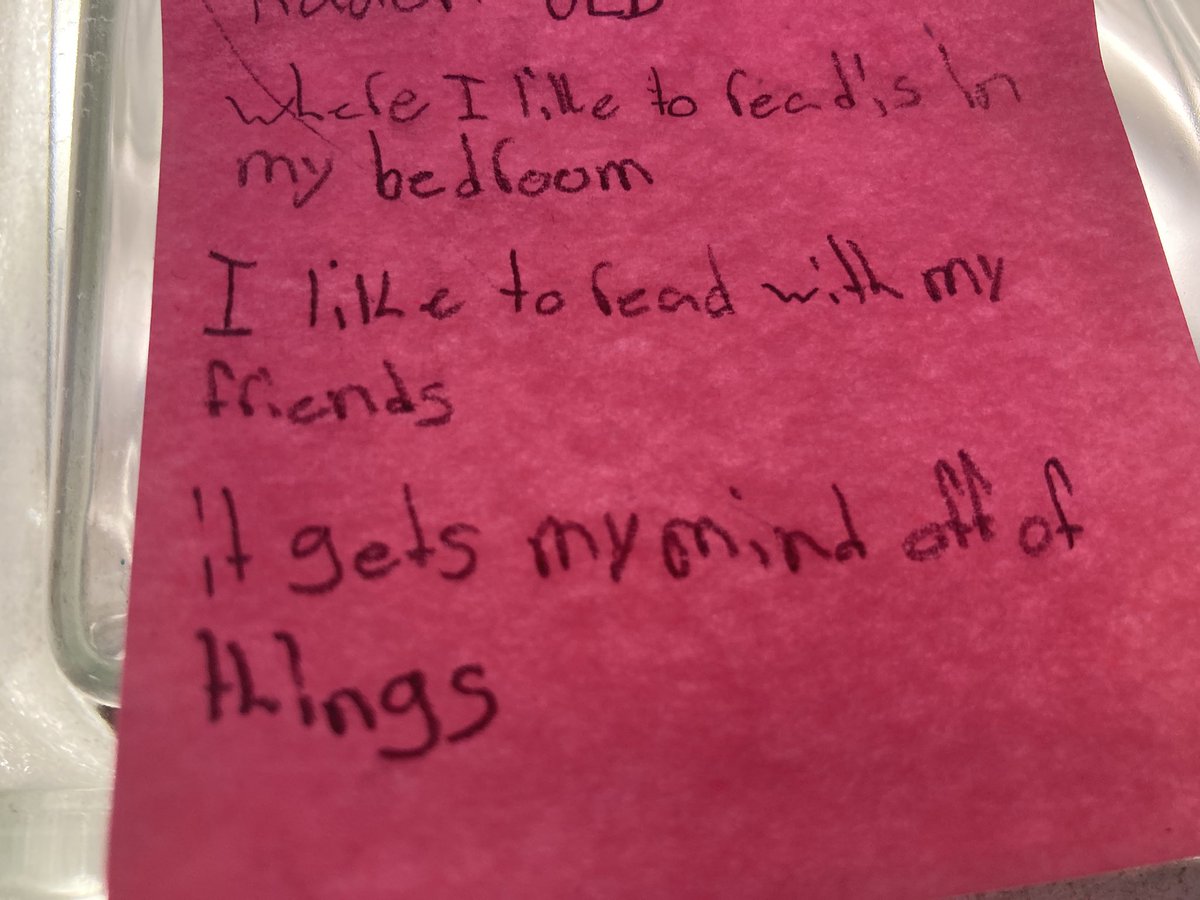 where I like to read is in
my bedroom
I like to read with my
friends
it gets my mind off of
things